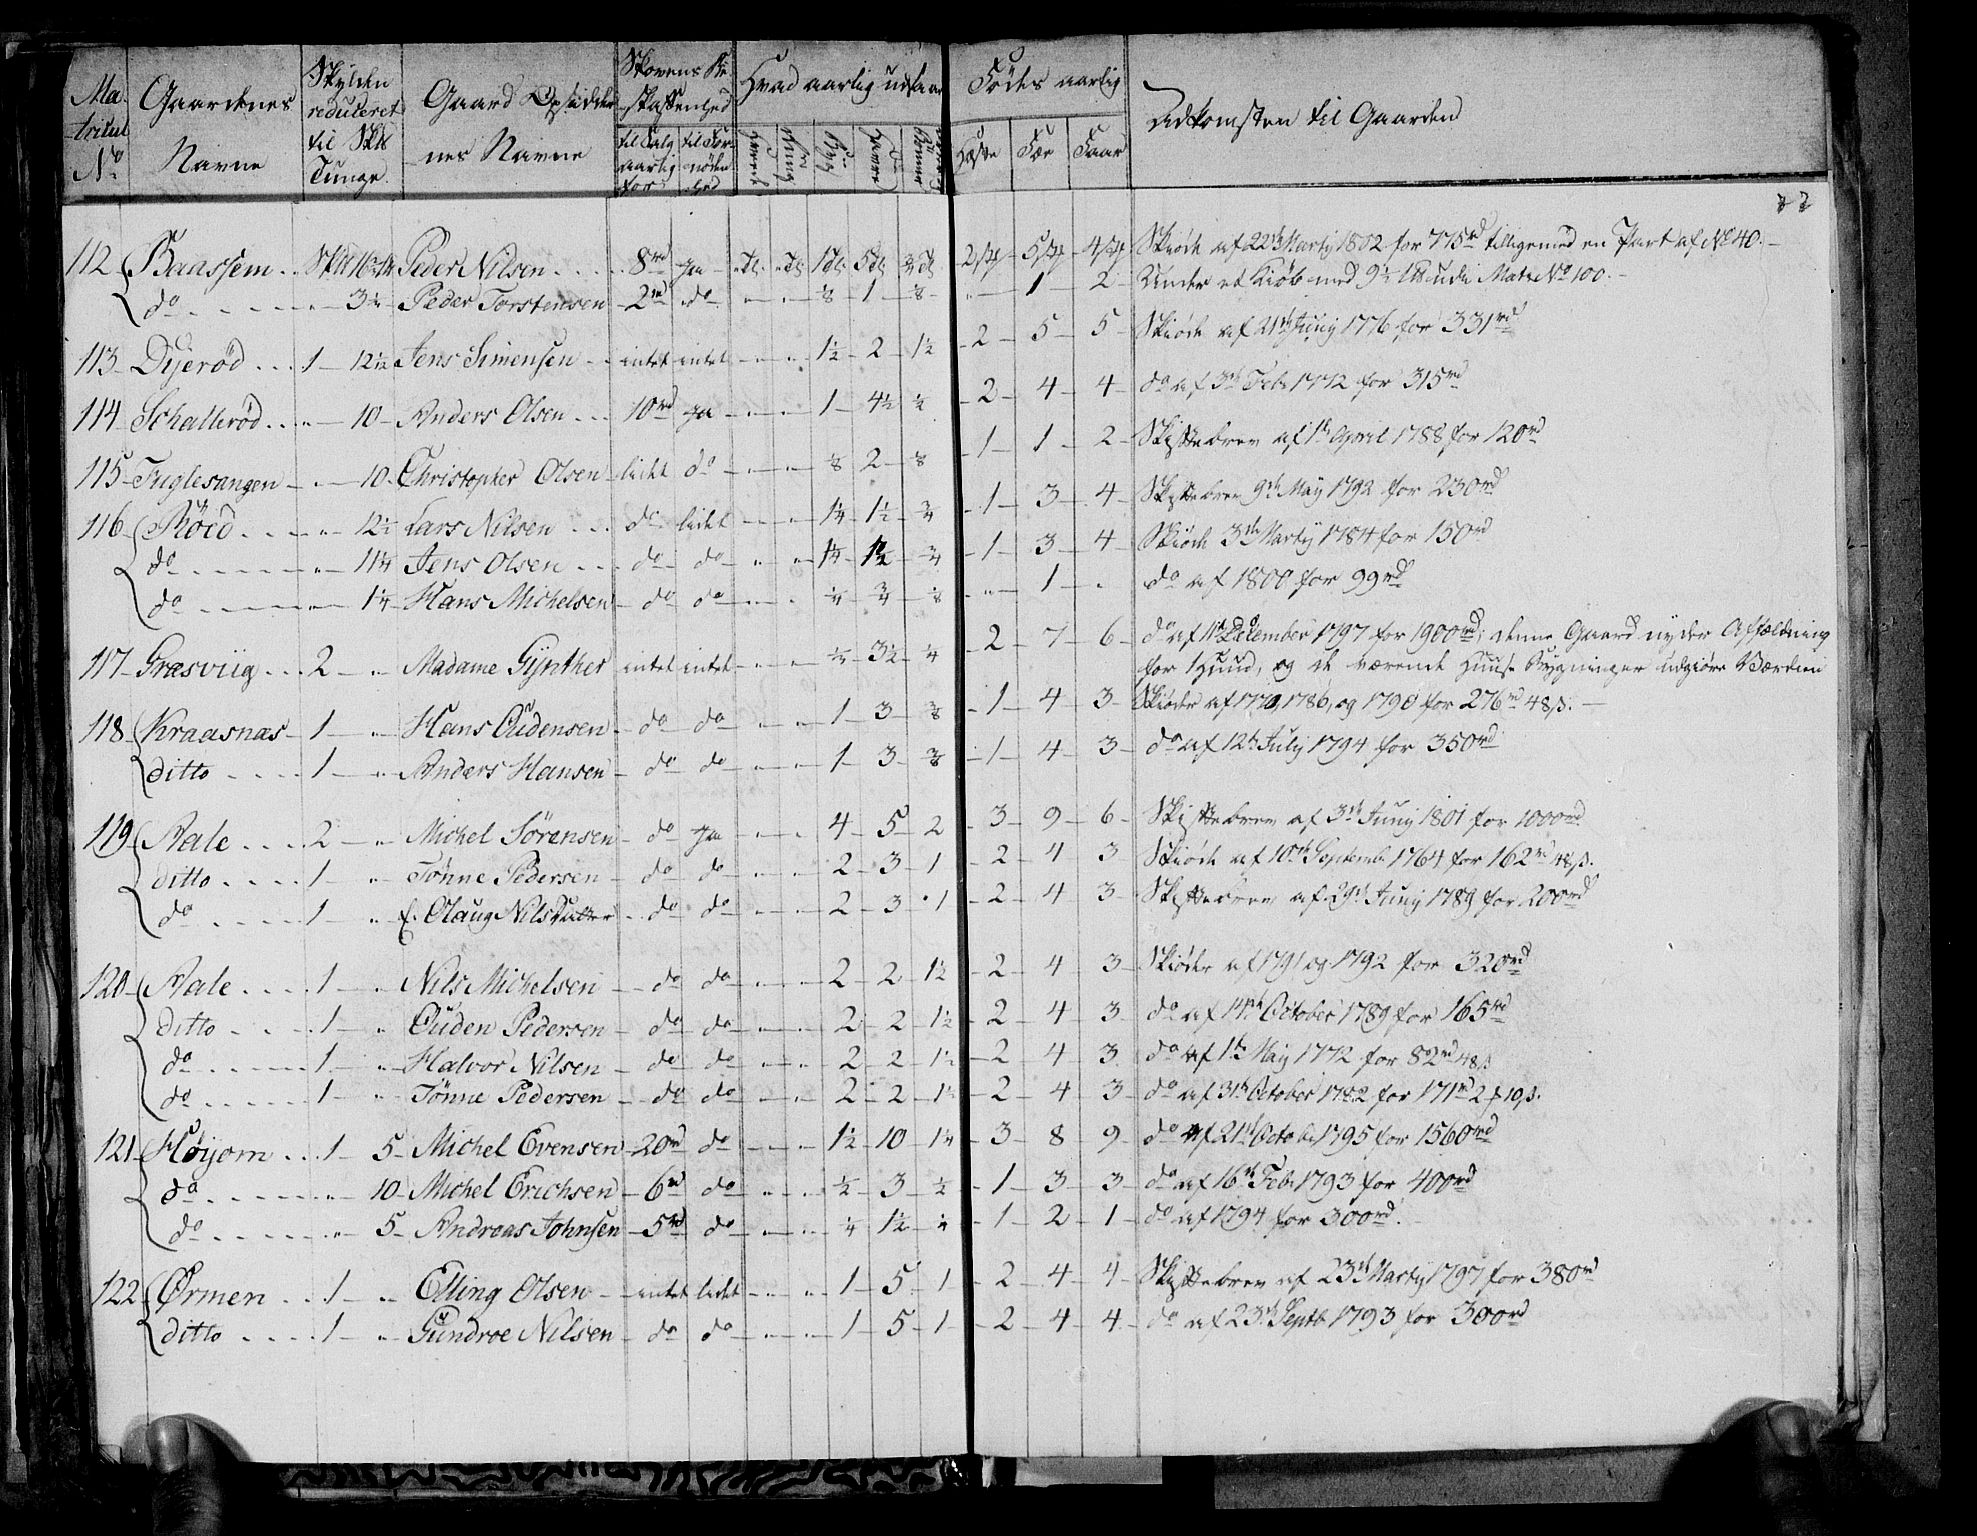 Ma- Gaardenes Skylden Gaard Opsidder Skovens Be- Hvad aarlig udsaaes Fødes aarlig Adkomsten til Gaarden
tricul Navne reduceret -nes Navne -skaffenhed
No til Skls Tunge. til Salg aarlig for til For- nøden- hed Hveede Rug Byg Havre Heste Fæe Faar
112 Baassem .. 16 Peder Nilsen .... 8rd Ja 2 5 4 Skiøde af 22de Martij 1802 for 775rd tilligemed en Part af No 40.
do 3½ Peder Torstensen 2rd do ⅛ 1 ⅛ 1 2 Under et Kiøb med 9½ Matr. No 100.
113 Dyerød ... 1 12½ Jens Simensen intet intet 1½ 2 1½ 2 5 5 Skiøde af 21de Junij 1776 for 331rd
114 Schallerød ... 10 Anders Olsen ... 10rd Ja 1 4½ ½ 2 4 4 do af 3de Feb. 1772 for 315rd
115 Fuglesangen 10 Christopher Olsen lidet do ⅛ 2 ⅛ 1 1 2 Skiftebrev af 1te April 1788 for 120rd
116 Röed 12½ Lars Nilsen ... do lidet 1¼ 1½ ¾ 1 3 4 Skiftebrev 9de Maij 1792 for 230rd
do 11¼ Jens Olsen ... do do 1¼ 1½ ¾ 1 3 4 Skiøde 3de Martij 1784 for 150rd
do 1¼ Hans Michelsen do do ¼ ¾ ⅛ 1 do af 1800 for 99rd
117 Græsviig ... 2 Madame Gÿnther intet intet ¼ 3½ ¼ 2 7 6 do af 11te December 1797 for 1900rd; denne Gaard nyder Affældning
for 1 Huud, og de værende Huuse Bygninger udgiøre Værdien
118 Kraasnæs 1 Hans Oudensen do do 1 3 ⅜ 1 4 3 Skiøder af 1770, 1786, og 1790 for 276rd 48s.
ditto .... 1 Anders Hansen do do 1 3 ⅜ 1 4 3 do af 12te Julij 1794 for 350rd
119 Aale .... 2 Michel Sørensen do Ja 4 5 2 3 9 6 Skiftebrev af 3de Junij 1801 for 1000rd
ditto .... 1 Tønne Pedersen do do 2 3 1 2 4 3 Skiøde af 10de Septembr. 1764 for 162rd 48s.
do 1 E. Olaug Nilsdatter do do 2 3 1 2 4 3 Skiftebrev af 29de Junij 1789 for 200rd
120 Aale .... 1 Nils Michelsen do do 2 2 1½ 2 4 3 Skiøder af 1791 og 1792 for 320rd
ditto .. 1 Ouden Pedersen do do 2 2 1½ 2 4 3 do af 14de October 1789 for 165rd
do 1 Halvor Nilsen do do 2 2 1½ 2 4 3 do af 1te Maij 1772 for 82rd 48s
do 1 Tønne Pedersen do do 2 2 1½ 2 4 3 do af 31te October 1782 for 171rd 2 10s.
121 Høÿom .. 1 5 Michel Evensen 20rd do 1½ 10 1¼ 3 8 9 do af 21de Octobr 1795 for 1560rd
do 10 Michel Erichsen 6rd do ½ 3 ½ 1 3 3 do af 16de Feb. 1793 for 400rd
do 5 Andreas Johnsen 5rd do ¼ 1½ ¼ 1 2 1 do af 1794 for 300rd.
122 Ørmen .. 1 Elling Olsen intet lidet 1 5 1 2 4 4 Skiftebrev af 23de Martij 1797 for 380rd
ditto .... 1 Gundroe Nilsen do do 1 5 1 2 4 4 do af 23de Septb 1793 for 300rd